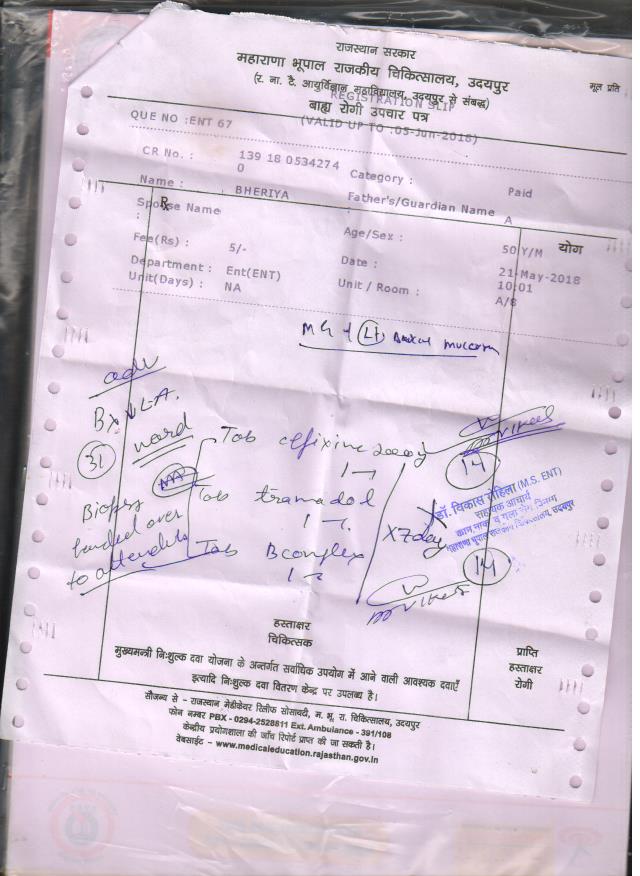 राजस्थान सरकार
महाराणा भूपाल राजकीय चिकित्सालय, उदयपुर
मूल प्रति
(र. ना. टै. आयुर्विज्ञान महाविद्यालय, उदयपुर से संबद्ध)
REGISTRATION SLIP
बाह्य रोगी उपचार पत्र
QUE NO :ENT 67
(VALID UP TO :05-Jun-2018)
CR No. : 139 18 0534274 0
Category : Paid
Name : BHERIYA
Father's/Guardian Name : A
Rx
Spouse Name :
Age/Sex : 50 Y/M
योग
Fee(Rs) : 5/-
Date : 21-May-2018 10:01
Department : Ent(ENT)
Unit / Room : A/B
Unit(Days) : NA
Lt Buccal mucosa
adv
Bx ↓ L.A.
31
ward
Tab cefixime 200mg
14
Biopsy
handed over
to attendents
Tab tramadol
X7day
Tab Bcomplex
डॉ. विकास रोहिला (M.S. ENT)
सहायक आचार्य
कान, नाक व गला रोग विभाग
14
हस्ताक्षर
चिकित्सक
मुख्यमन्त्री निःशुल्क दवा योजना के अन्तर्गत सर्वाधिक उपयोग में आने वाली आवश्यक दवाएँ
इत्यादि निःशुल्क दवा वितरण केन्द्र पर उपलब्ध है।
प्राप्ति
हस्ताक्षर
रोगी
सौजन्य से - राजस्थान मेडीकेयर रिलीफ सोसायटी, म. भू. रा. चिकित्सालय, उदयपुर
फोन नम्बर PBX - 0294-2528811 Ext. Ambulance - 391/108
केन्द्रीय प्रयोगशाला की जाँच रिपोर्ट प्राप्त की जा सकती है।
वेबसाईट - www.medicaleducation.rajasthan.gov.in